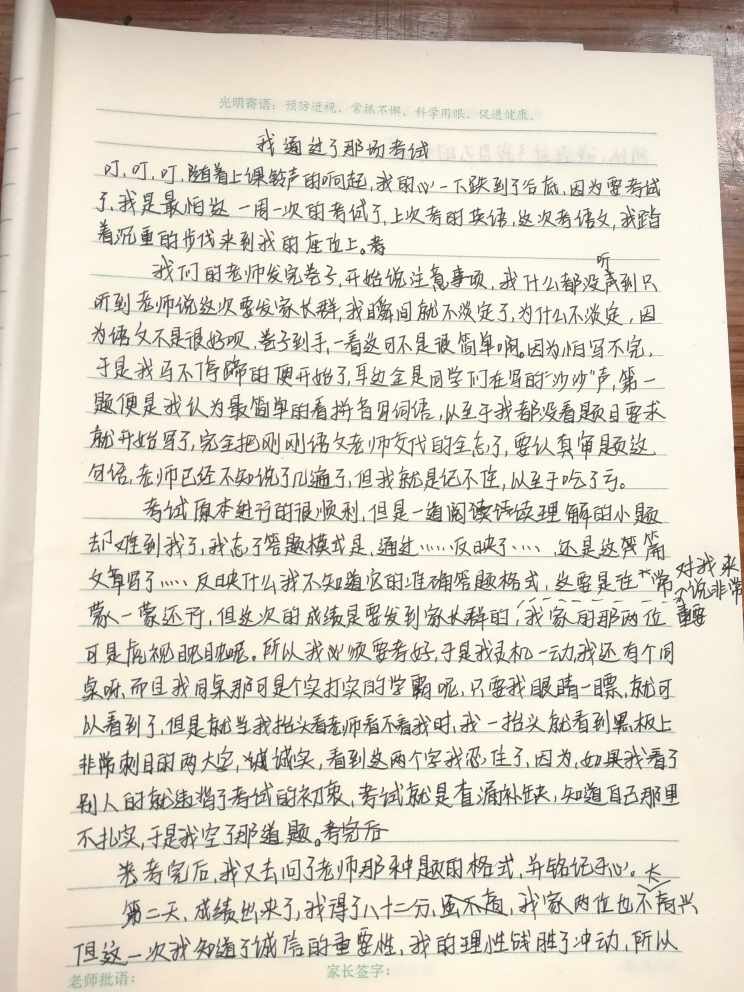 光明寄语：预防近视、常抓不懈、科学用眼、促进健康。
我通过了那场考试
叮，叮，叮，随着上课铃声的响起，我的心一下跌到了谷底，因为要考试
了，我是最怕这一周一次的考试了，上次考的英语，这次考语文，我踏
着沉重的步伐来到我的座位上。考
我们的老师发完卷子，开始说注意事项，我什么都没听到只
听到老师说这次要发家长群，我瞬间就不淡定了，为什么不淡定，因
为语文不是很好呗，卷子到手，一看这可不是很简单啊。因为怕写不完，
于是我马不停蹄的便开始了，耳边全是同学们在写的“沙沙”声，第一
题便是我认为最简单的看拼音写词语，以至于我都没看题目要求
就开始写了，完全把刚刚语文老师交代的全忘了，要认真审题这
句话，老师已经不知说了几遍了，但我就是记不住，以至于吃了亏。
考试原本进行的很顺利，但是一道阅读理解的小题
却难到我了，我忘了答题模式是，通过……反映了……，还是这篇
文章写了……反映什么我不知道它的准确答题格式，这要是在平常
蒙一蒙还行，但这次的成绩是要发到家长群的，对我来说非常重要，我家的那两位
可是虎视眈眈呢。所以我必须要考好，于是我灵机一动，我还有个同
桌呀，而且我同桌那可是个实打实的学霸呢，只要我眼睛一瞟，就可
以看到了，但是就当我抬头看老师看不看我时，我一抬头就看到黑板上
非常刺目的两大字，诚实，看到这两个字我忍住了，因为，如果我看了
别人的就违背了考试的初衷，考试就是查漏补缺，知道自己那里
不扎实，于是我空了那道题。考完后
考完后，我又去问了老师那种题的格式，并铭记于心。
第二天，成绩出来了，我得了八十二分，我家两位也不太高兴
但这一次我知道了诚信的重要性，我的理性战胜了冲动，所以
老师批语：
家长签字：